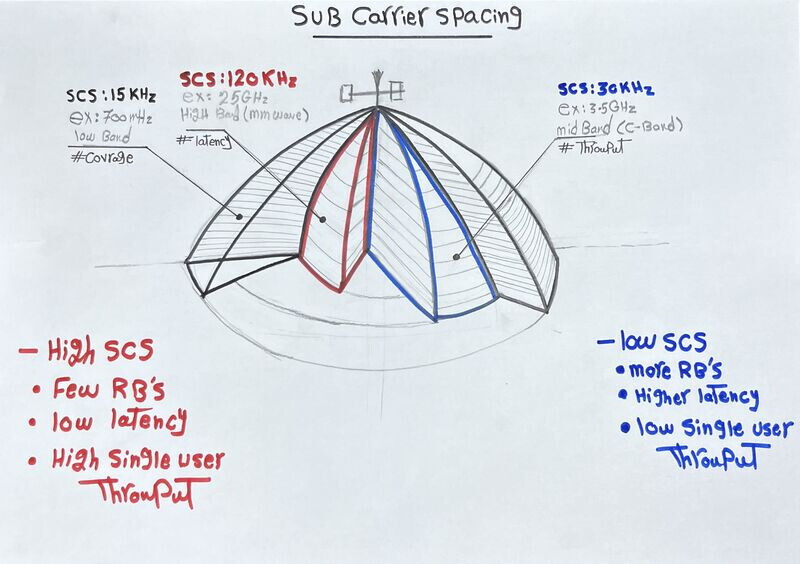 SUB Carrier Spacing
SCS:15KHz
ex:700mHz
low Band
#Covrage
SCS:120KHz
ex: 25GHz
High Band(mmwave)
#latency
SCS:30KHz
ex: 3.5GHz
mid Band (C-Band)
#ThrouPuT
- High SCS
• Few RB's
• low latency
• High Single user
ThrouPuT
- low SCS
• more RB's
• Higher latency
• low Single user
ThrouPuT